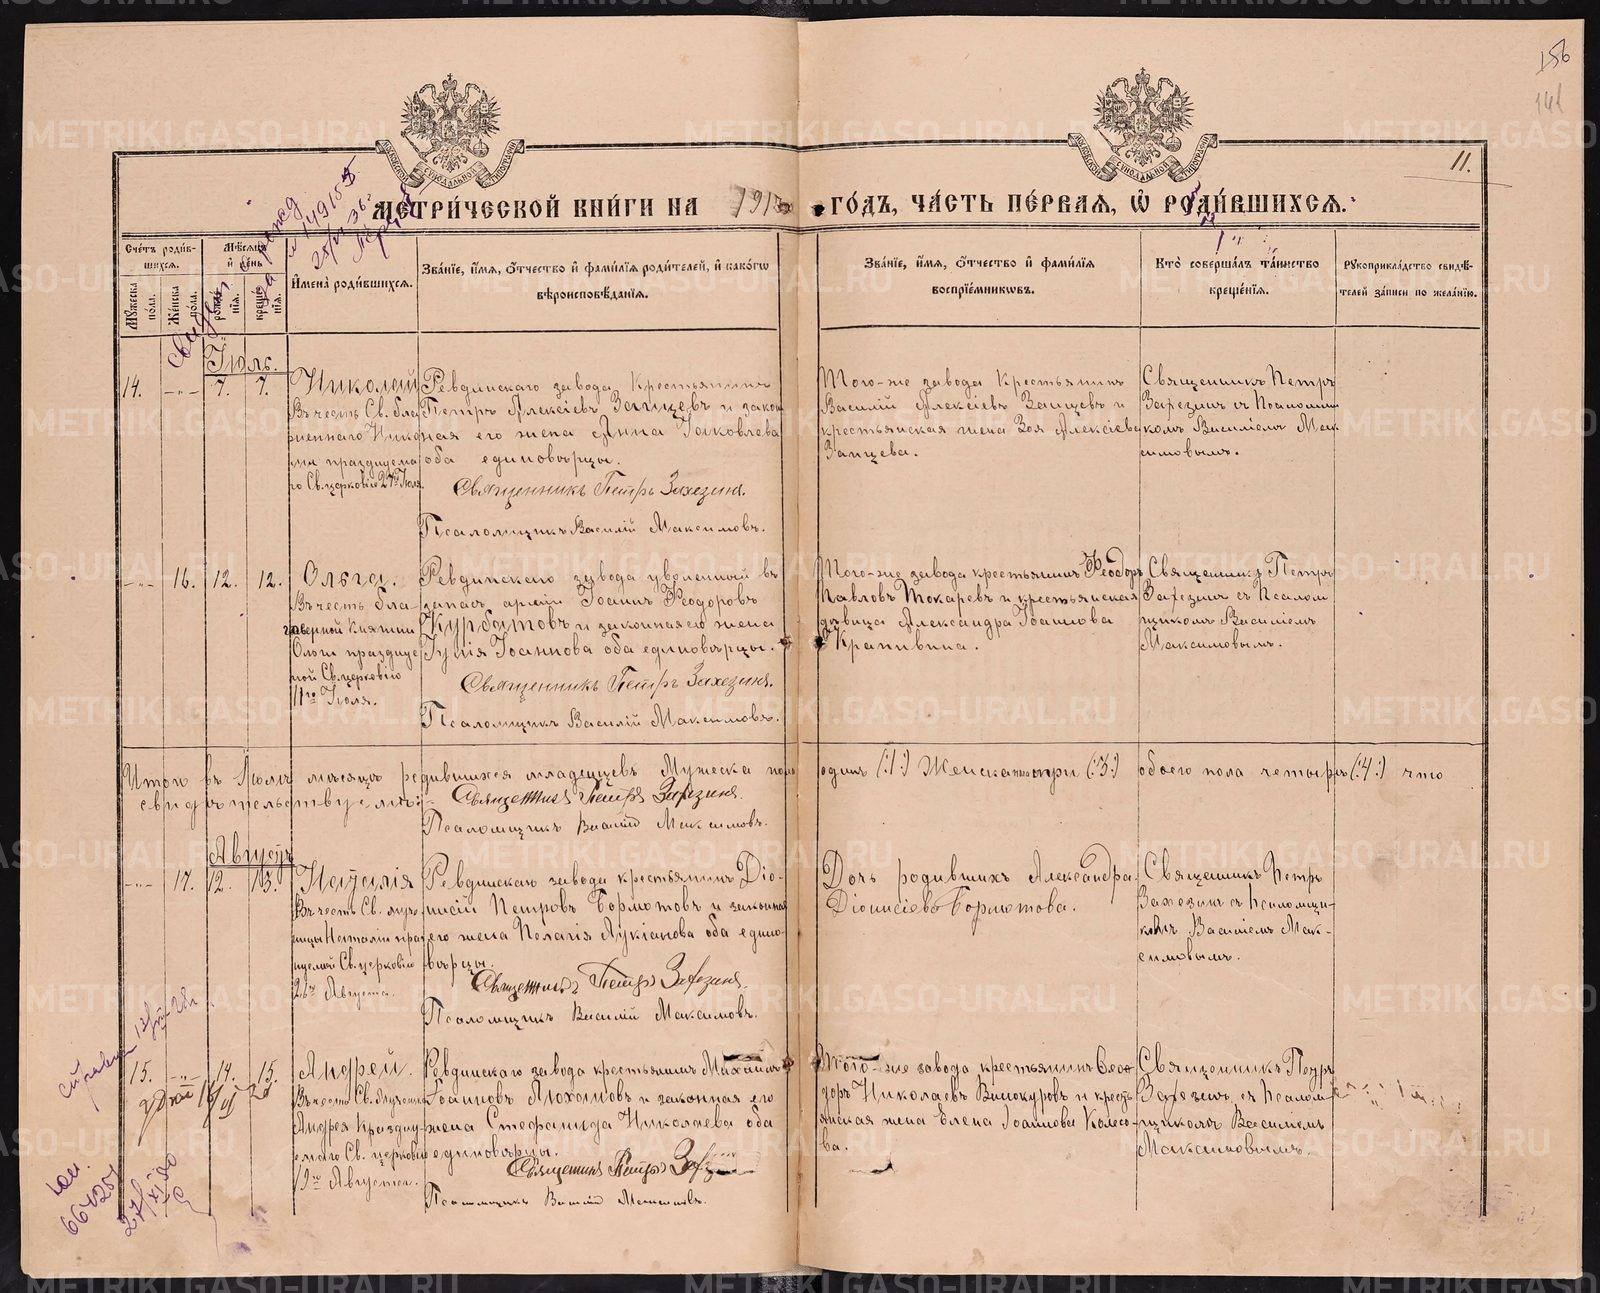 156
141
11.
МЕТРИ́ЧЕСКОЙ КНИ́ГИ НА 191
ГО́ДЪ, ЧА́СТЬ ПЕ́РВАЯ, Ѡ РОДИ́ВШИХСЯ.
Сче́тъ роди́вшихся.
Му́жеска по́ла.
Же́нска по́ла.
Мѣ́сяцъ и҆ де́нь
рожде́нія.
креще́нія.
И҆мена̀ роди́вшихся.
Зва́ніе, и҆́мя, ѻ҆́тчество и҆ фами́лія роди́телей, и҆ како́гѡ
вѣроисповѣ́данія.
Зва́ніе, и҆́мя, ѻ҆́тчество и҆ фами́лія
воспріе́мникѡвъ.
Кто̀ соверша́лъ та́инство
креще́нія.
Рꙋкоприкла́дство свидѣ́-
телей за́писи по жела́нію.
Іюль.
14.
7.
7.
Николай
Въ честь Св. бла
женнаго Нико
лая празднуема
го Св. церковію 27го Іюля.
Ревдинскаго завода, Крестьянинъ
Петръ Алексіевъ Зайцевъ и закон
ная его жена Анна Іаковлева
оба единовѣрцы.
Священникъ Петръ Захезинъ.
Псаломщикъ Василій Максимовъ.
Того-же завода Крестьянинъ
Василій Алексіевъ Зайцевъ и
крестьянская жена Зоя Алексіева
Зайцева.
Священникъ Петръ
Захезинъ съ Псаломщи
комъ Василіемъ Мак
симовымъ.
16.
12.
12.
Ольга.
Въ честь бла-
говерной Княгини
Ольги празднуе
мой Св. церковію
11го Іюля.
Ревдинскаго завода уволенный въ
запасъ арміи Іоаннъ Ѳеодоровъ
Курбатовъ и законная его жена
Іулія Іоаннова оба единовѣрцы.
Священникъ Петръ Захезинъ.
Псаломщикъ Василій Максимовъ.
Того-же завода крестьянинъ Ѳеодоръ
Павловъ Токаревъ и крестьянская
дѣвица Александра Іоаннова
Крапивина.
Священникъ Петръ
Захезинъ съ Псалом
щикомъ Василіемъ
Максимовымъ.
Итого въ Іюлѣ мѣсяцѣ родившихся младенцевъ Мужеска пола один (:1:) Женска пола три (:3:) обоего пола четыре (:4:) что
свидѣтельствуемъ:
Священникъ Петръ Захезинъ.
Псаломщикъ Василій Максимовъ.
Августъ
17.
12.
13.
Наталія
Въ честь Св. муче
ницы Наталіи праз
нуемой Св. церковію
26го Августа.
Ревдинскаго завода крестьянинъ Діо-
нисій Петровъ Бормотовъ и законная
его жена Пелагія Лукіанова оба едино-
вѣрцы.
Священникъ Петръ Захезинъ.
Псаломщикъ Василій Максимовъ.
Дочь родившихъ Александра
Діонисіева Бормотова.
Священникъ Петръ
Захезинъ съ Псаломщи-
комъ Василіемъ Мак-
симовымъ.
15.
14.
15.
Андрей.
Въ честь Св. Мученика
Андрея празднуе
маго Св. церковію
19го Августа.
Ревдинскаго завода крестьянинъ Михаилъ
Іоанновъ и законная его
жена Стефанида Николаева оба
единовѣрцы.
Священникъ Петръ
Псаломщикъ Василій Максимовъ.
Того-же завода крестьянинъ Ѳео-
доръ Николаевъ Винокуровъ и кресть
янская жена Елена Іоаннова Колесо-
ва.
Священникъ Петръ
Захезинъ съ Псалом-
щикомъ Василіемъ
Максимовымъ.
66425